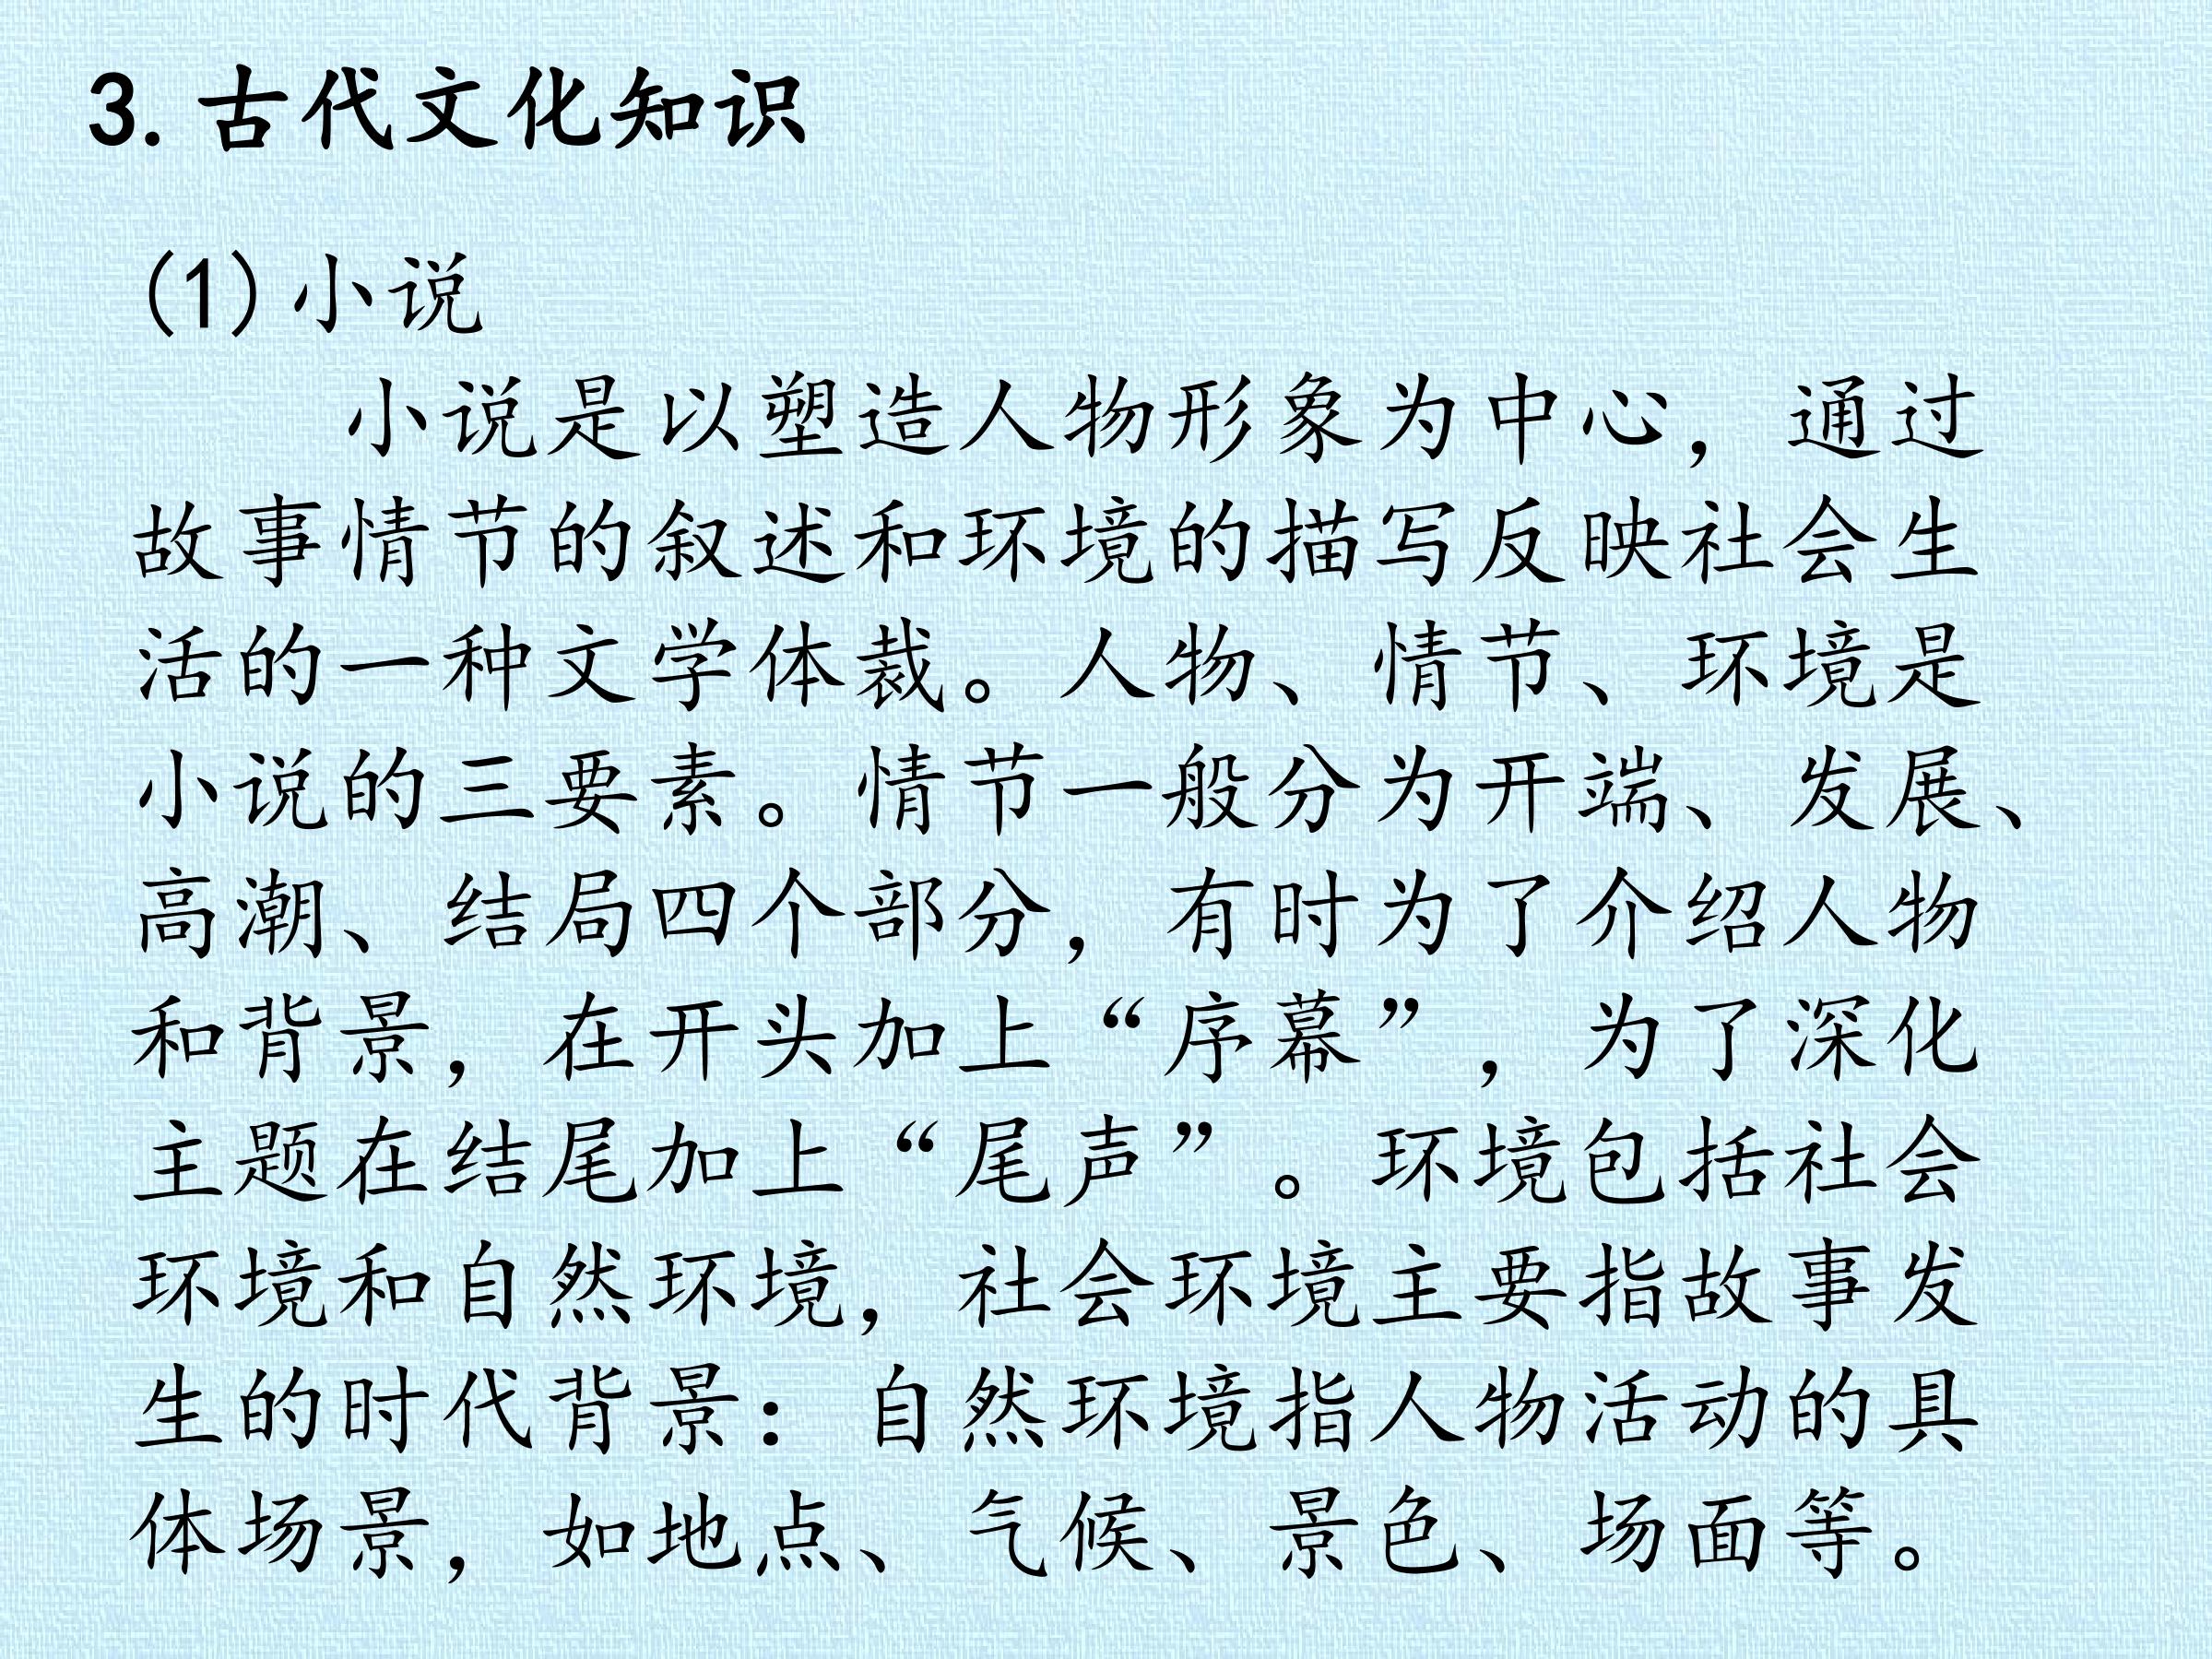 3.古代文化知识
(1)小说
小说是以塑造人物形象为中心，通过
故事情节的叙述和环境的描写反映社会生
活的一种文学体裁。人物、情节、环境是
小说的三要素。情节一般分为开端、发展、
高潮、结局四个部分，有时为了介绍人物
和背景，在开头加上“序幕”，为了深化
主题在结尾加上“尾声”。环境包括社会
环境和自然环境，社会环境主要指故事发
生的时代背景：自然环境指人物活动的具
体场景，如地点、气候、景色、场面等。